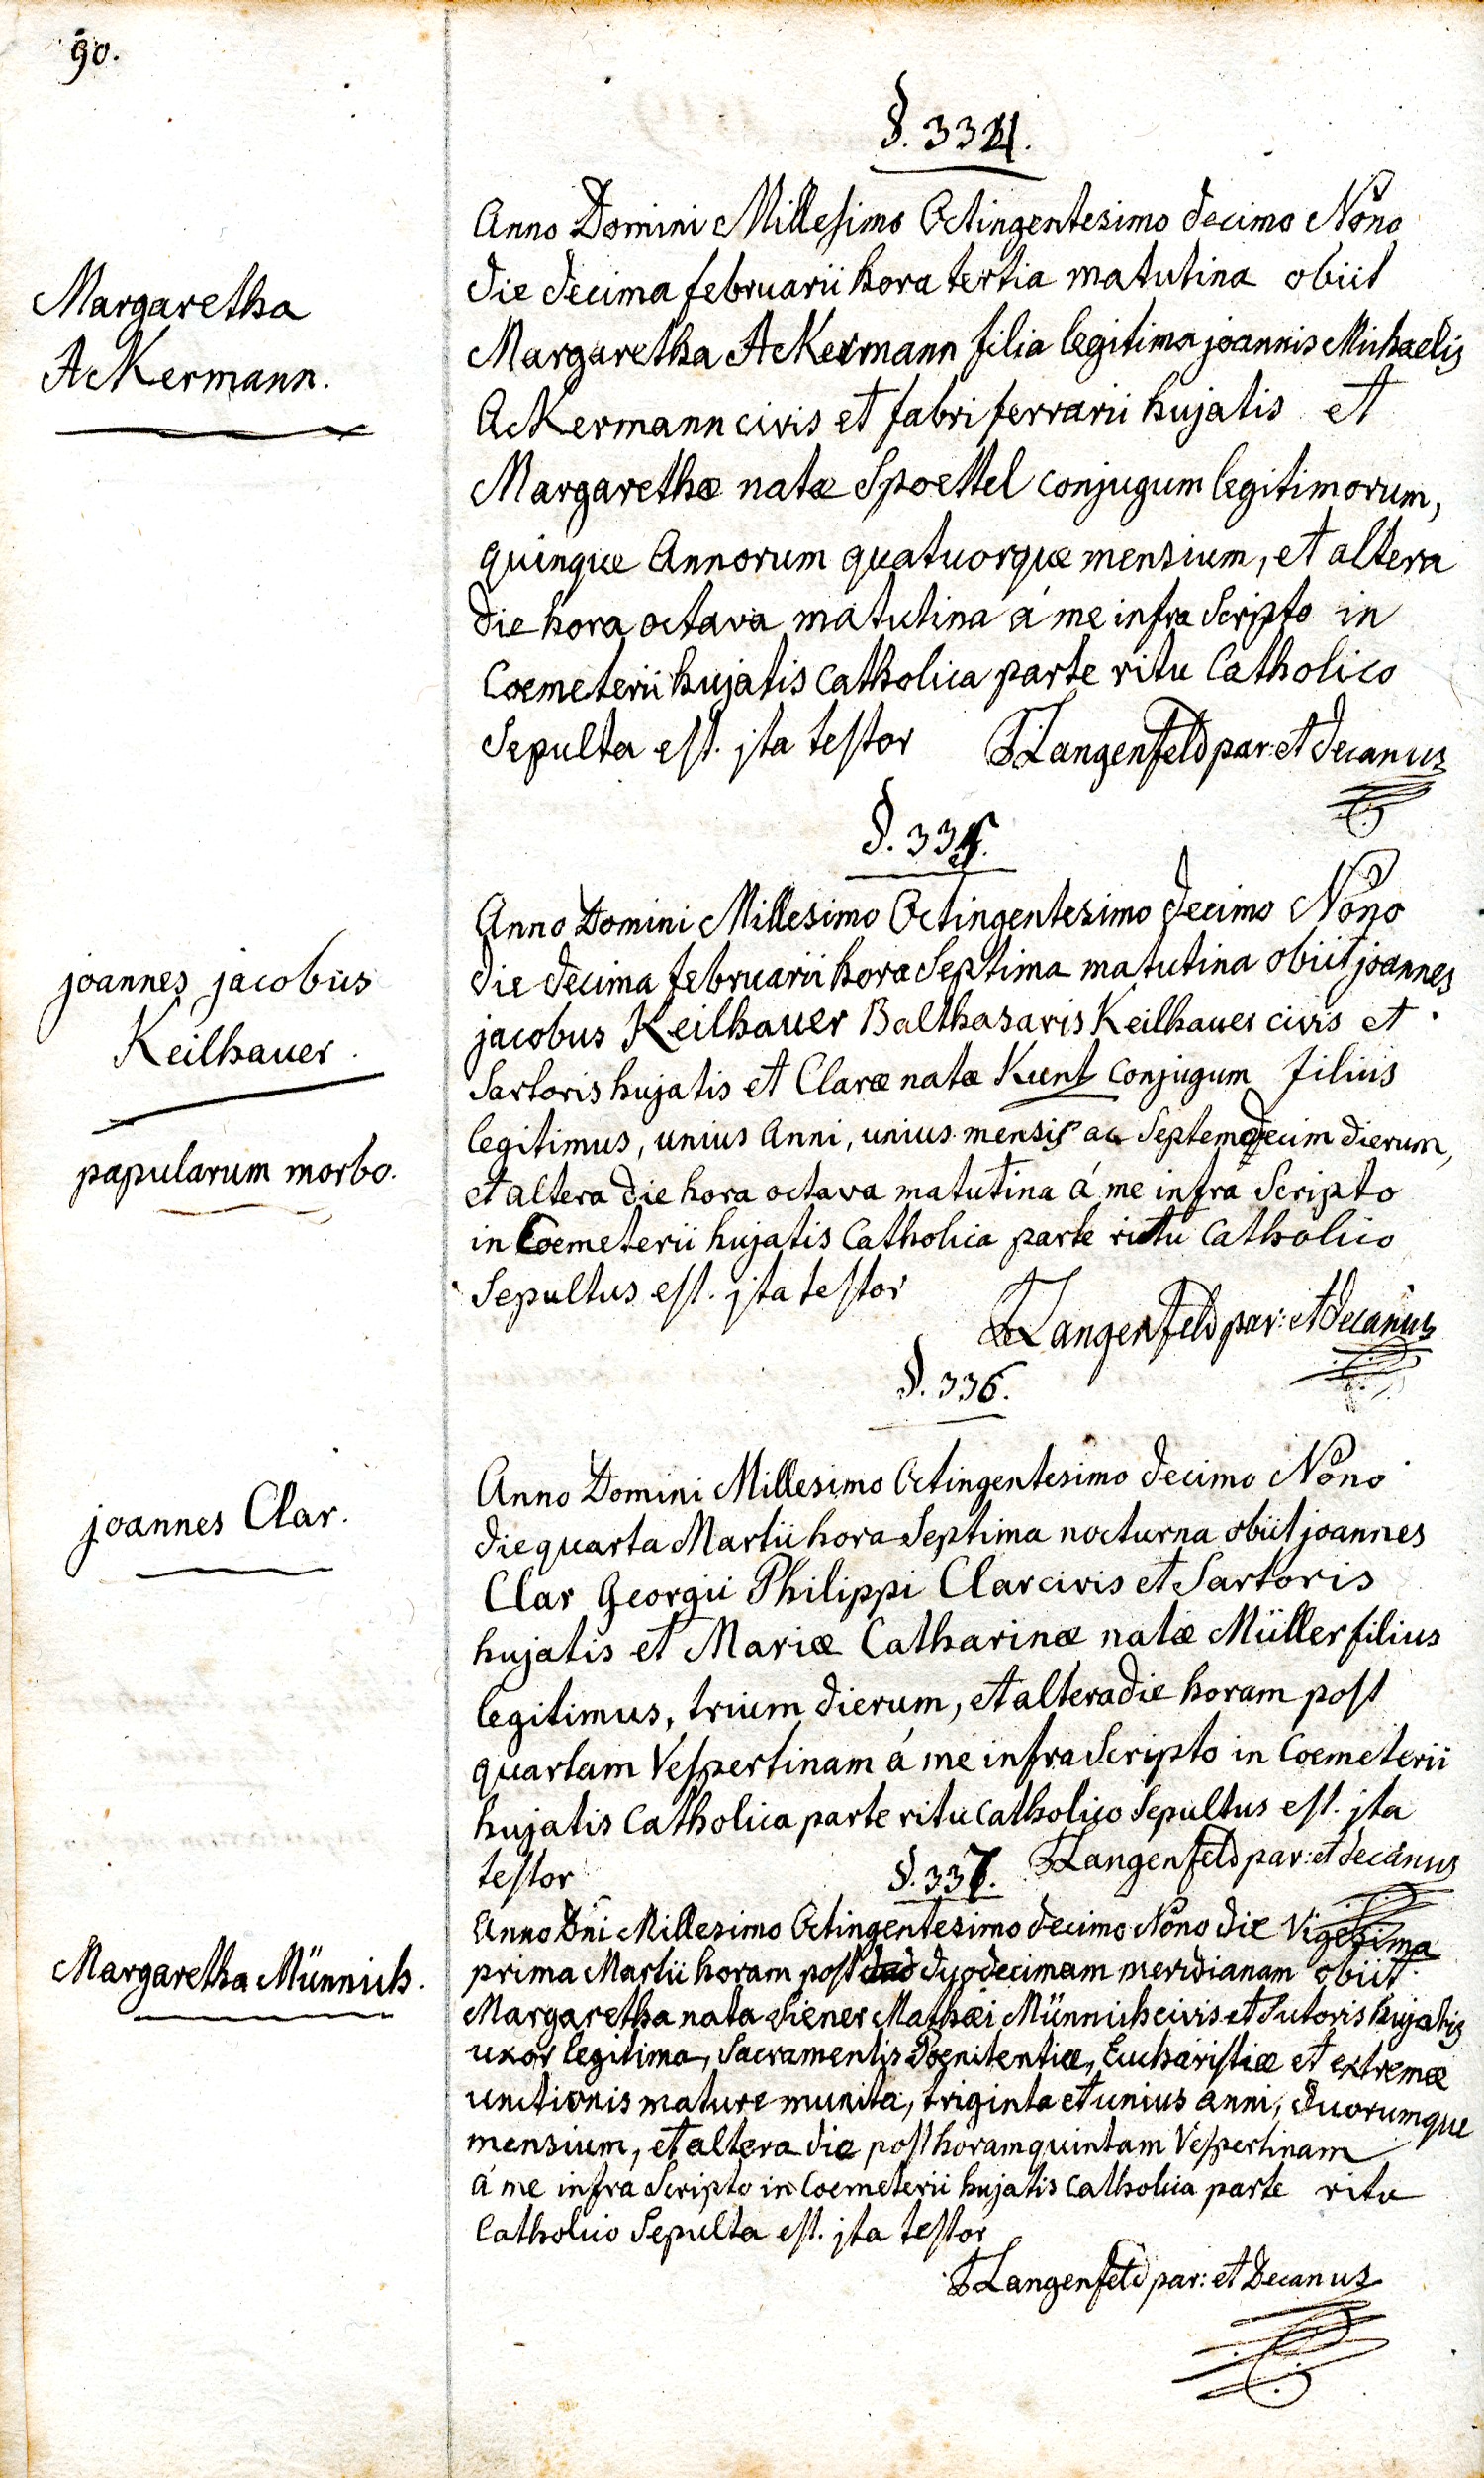 90.
§. 334.
Margaretha
Ackermann.
Anno Domini Millesimo Octingentesimo decimo Nono
die decima februarii hora tertia matutina obiit
Margaretha Ackermann filia legitima joannis Michaelis
Ackermann civis et fabri ferrarii hujatis et
Margarethæ natæ Spoettel conjugum legitimorum,
quinque Annorum quatuorque mensium, et altera
die hora octava matutina á me infra Scripto in
Coemeterii hujatis Catholica parte ritu Catholico
Sepulta est. jta testor Langenfeld par: et decanus
§. 335.
joannes jacobus
Keilhauer.
papularum morbo.
Anno Domini Millesimo Octingentesimo decimo Nono
die decima februarii hora Septima matutina obiit joannes
jacobus Keilhauer Balthasaris Keilhauer civis et
Sartoris hujatis et Claræ natæ Kunt conjugum filius
legitimus, unius Anni, unius mensis ac Septemdecim dierum,
et altera die hora octava matutina á me infra Scripto
in Coemeterii hujatis Catholica parte ritu Catholico
Sepultus est. jta testor
Langenfeld par: et decanus
§. 336.
joannes Clar.
Anno Domini Millesimo Octingentesimo decimo Nono
die quarta Martii hora Septima nocturna obiit joannes
Clar Georgii Philippi Clar civis et Sartoris
hujatis et Mariæ Catharinæ natæ Müller filius
legitimus, trium dierum, et altera die horam post
quartam Vespertinam á me infra Scripto in Coemeterii
hujatis Catholica parte ritu Catholico Sepultus est. jta
testor Langenfeld par: et decanus
§. 337.
Margaretha Münnich.
Anno Dni Millesimo Octingentesimo decimo Nono die Vigesima
prima Martii horam post duodecimam meridianam obiit
Margaretha nata Siener Mathæi Münnich civis et Sutoris hujatis
uxor legitima, Sacramentis Poenitentiæ, Eucharistiæ et extremæ
unctionis mature munita, triginta et unius anni, duorumque
mensium, et altera die post horam quintam Vespertinam
á me infra Scripto in Coemeterii hujatis Catholica parte ritu
Catholico Sepulta est. jta testor
Langenfeld par: et Decanus